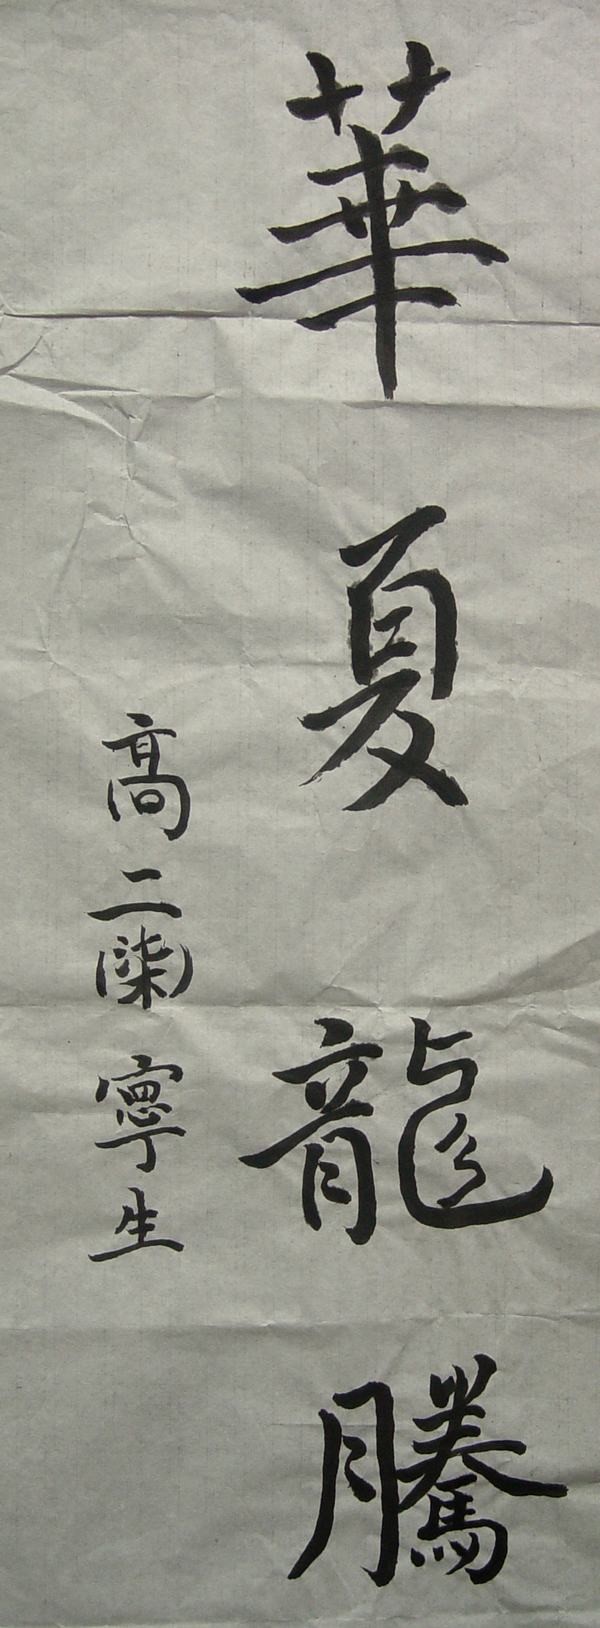 華夏龍騰
高二(柒)寧生